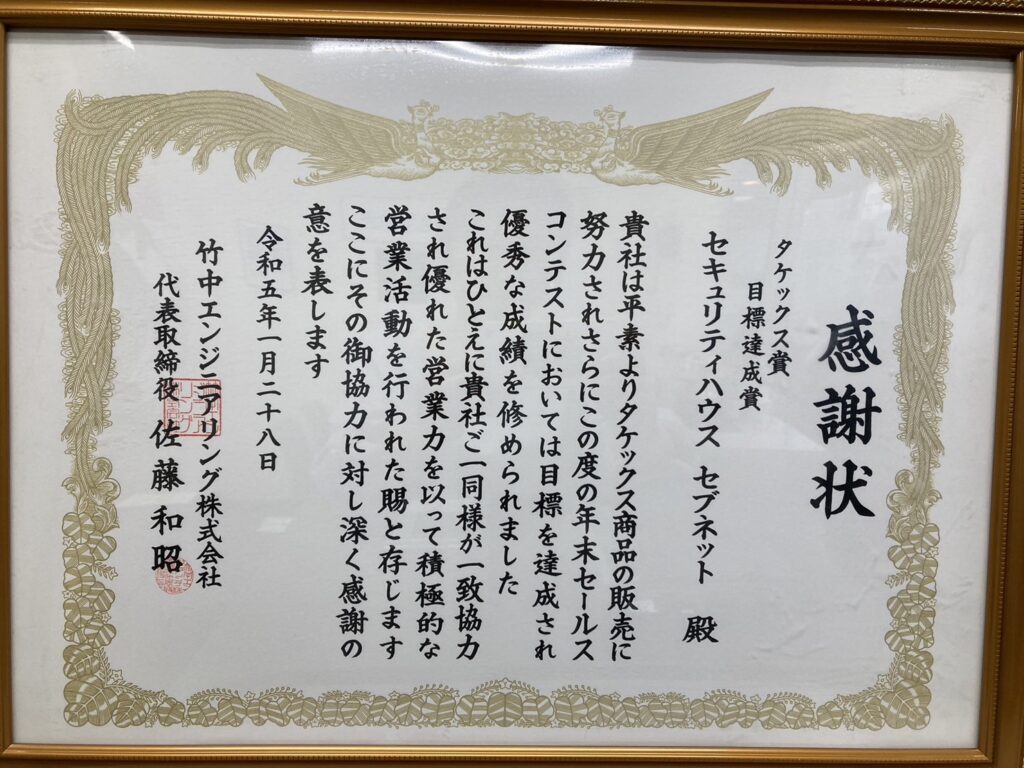 感謝状
タケックス賞
目標達成賞
セキュリティハウス セブネット 殿
貴社は平素よりタケックス商品の販売に
努力されさらにこの度の年末セールス
コンテストにおいては目標を達成され
優秀な成績を修められました
これはひとえに貴社ご一同様が一致協力
され優れた営業力を以って積極的な
営業活動を行われた賜と存じます
ここにその御協力に対し深く感謝の
意を表します
令和五年一月二十八日
竹中エンジニアリング株式会社
代表取締役 佐藤和昭